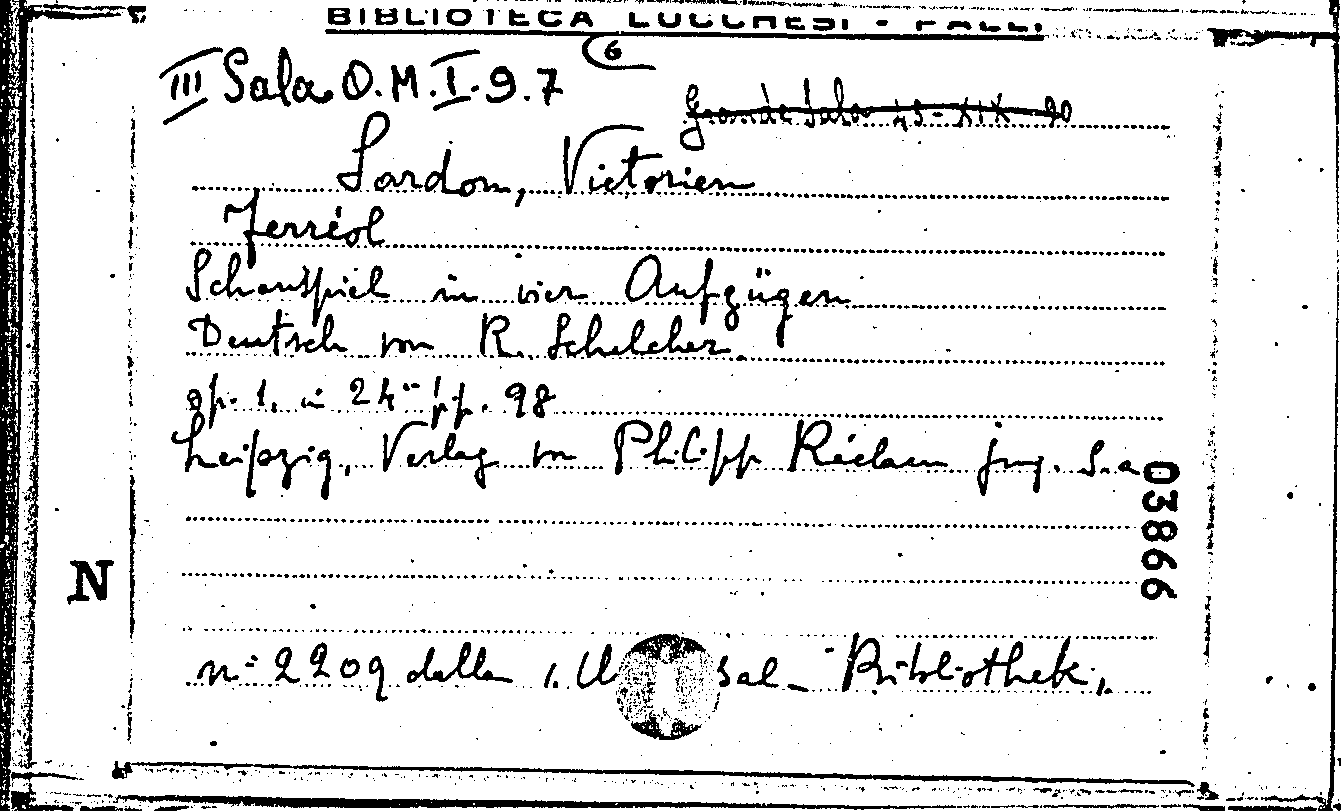 BIBLIOTECA LUCCHESI - PALLI
6
III Sala O.M.I.9.7
Grande Sala 43-XIX-90
Sardou, Victorien
Ferréol
Schauspiel in vier Aufzügen
Deutsch von R. Schelcher.
op. 1. in 24° pp. 98
Leipzig, Verlag von Philipp Réclam jung. S.a
03866
N
n= 2209 della "U sal-Bibliothek"